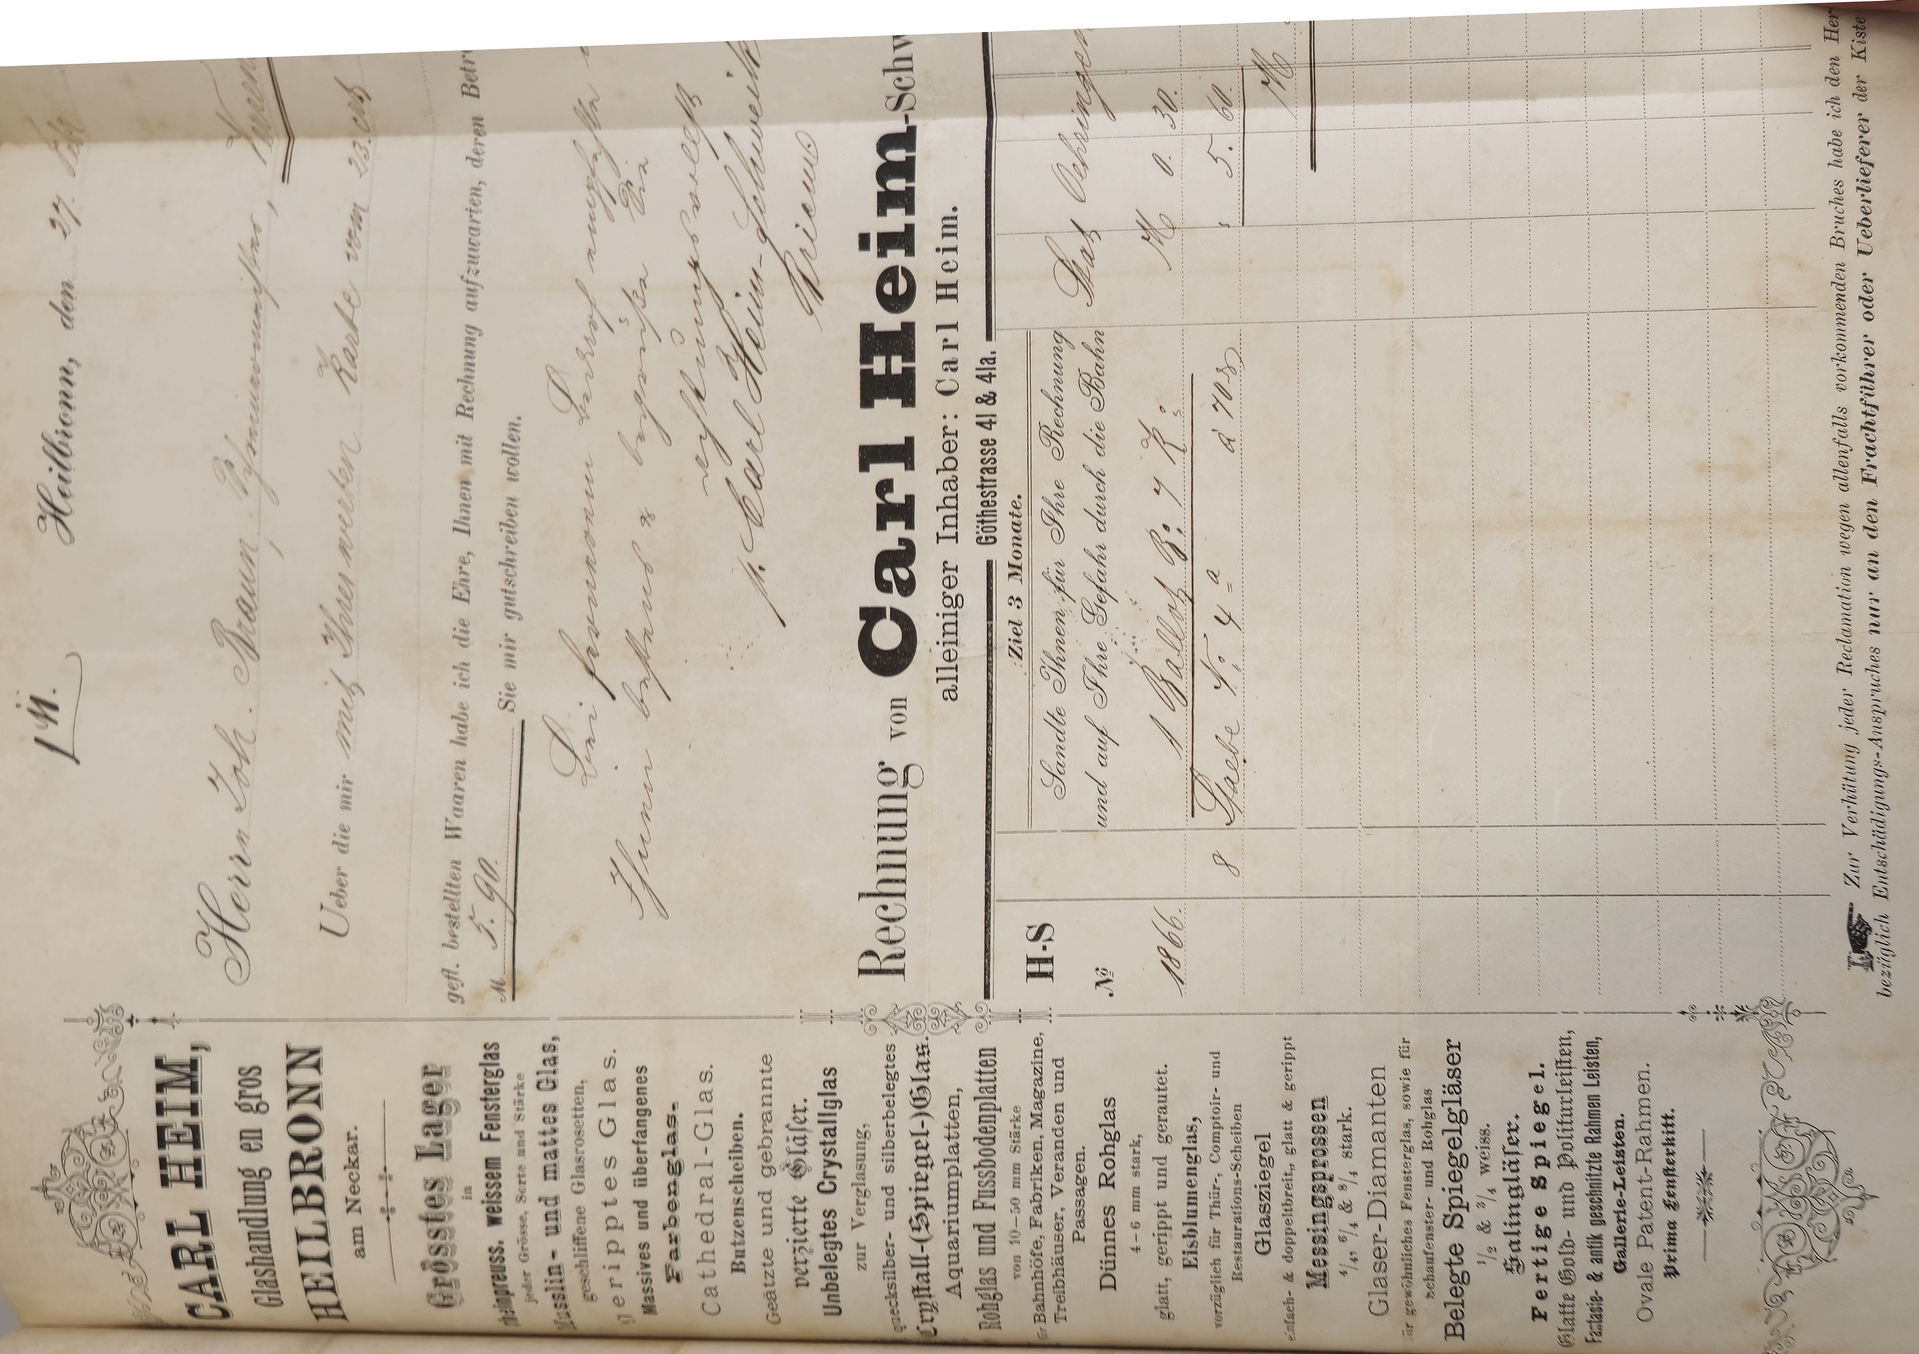 CARL HEIM,
Glashandlung en gros
HEILBRONN
am Neckar.
Grösstes Lager
in
rheinpreuss. weissem Fensterglas
jeder Grösse, Sorte und Stärke
Musslin- und mattes Glas,
geschliffene Glasrosetten,
geripptes Glas.
Massives und überfangenes
Farbenglas.
Cathedral-Glas.
Butzenscheiben.
Geätzte und gebrannte
verzierte Gläser.
Unbelegtes Crystallglas
zur Verglasung,
quecksilber- und silberbelegtes
Crystall-(Spiegel-)Glas.
Aquariumplatten,
Rohglas und Fussbodenplatten
von 10–50 mm Stärke
für Bahnhöfe, Fabriken, Magazine,
Treibhäuser, Veranden und
Passagen.
Dünnes Rohglas
4–6 mm stark,
glatt, gerippt und gerautet.
Eisblumenglas,
vorzüglich für Thür-, Comptoir- und
Restaurations-Scheiben
Glasziegel
einfach- & doppeltbreit,, glatt & gerippt
Messingsprossen
4/4, 5/4 & 6/4 stark.
Glaser-Diamanten
für gewöhnliches Fensterglas, sowie für
Schaufenster- und Rohglas
Belegte Spiegelgläser
1/2 & 3/4 weiss.
Salingläser.
Fertige Spiegel.
Glatte Gold- und Politurleisten,
Fantasie- & antik geschnitzte Rahmen Leisten,
Gallerie-Leisten.
Ovale Patent-Rahmen.
Prima Fensterkitt.
Heilbronn, den 27.
Herrn Joh. Braun,
Ueber die mir mit Ihrer werten Karte vom 23. crt
gefl. bestellten Waaren habe ich die Ehre, Ihnen mit Rechnung aufzuwarten, deren Betr
M. 5. 90. Sie mir gutschreiben wollen.
Ihnen bestens & begrüße Sie
achtungsvollst
p. Carl Heim-Schweik
Rechnung von Carl Heim-Schw
alleiniger Inhaber: Carl Heim.
Göthestrasse 41 & 41a.
Ziel 3 Monate.
H-S
Sandte Ihnen für Ihre Rechnung
und auf Ihre Gefahr durch die Bahn
Stat Oehringen
No
1866. 1 Ballot B: 7 K: M 0. 30.
8 Staebe N: 4 a à 70 5. 60.
M
Zur Verhütung jeder Reclamation wegen allenfalls vorkommenden Bruches habe ich den Her
bezüglich Entschädigungs-Anspruches nur an den Frachtführer oder Ueberlieferer der Kiste